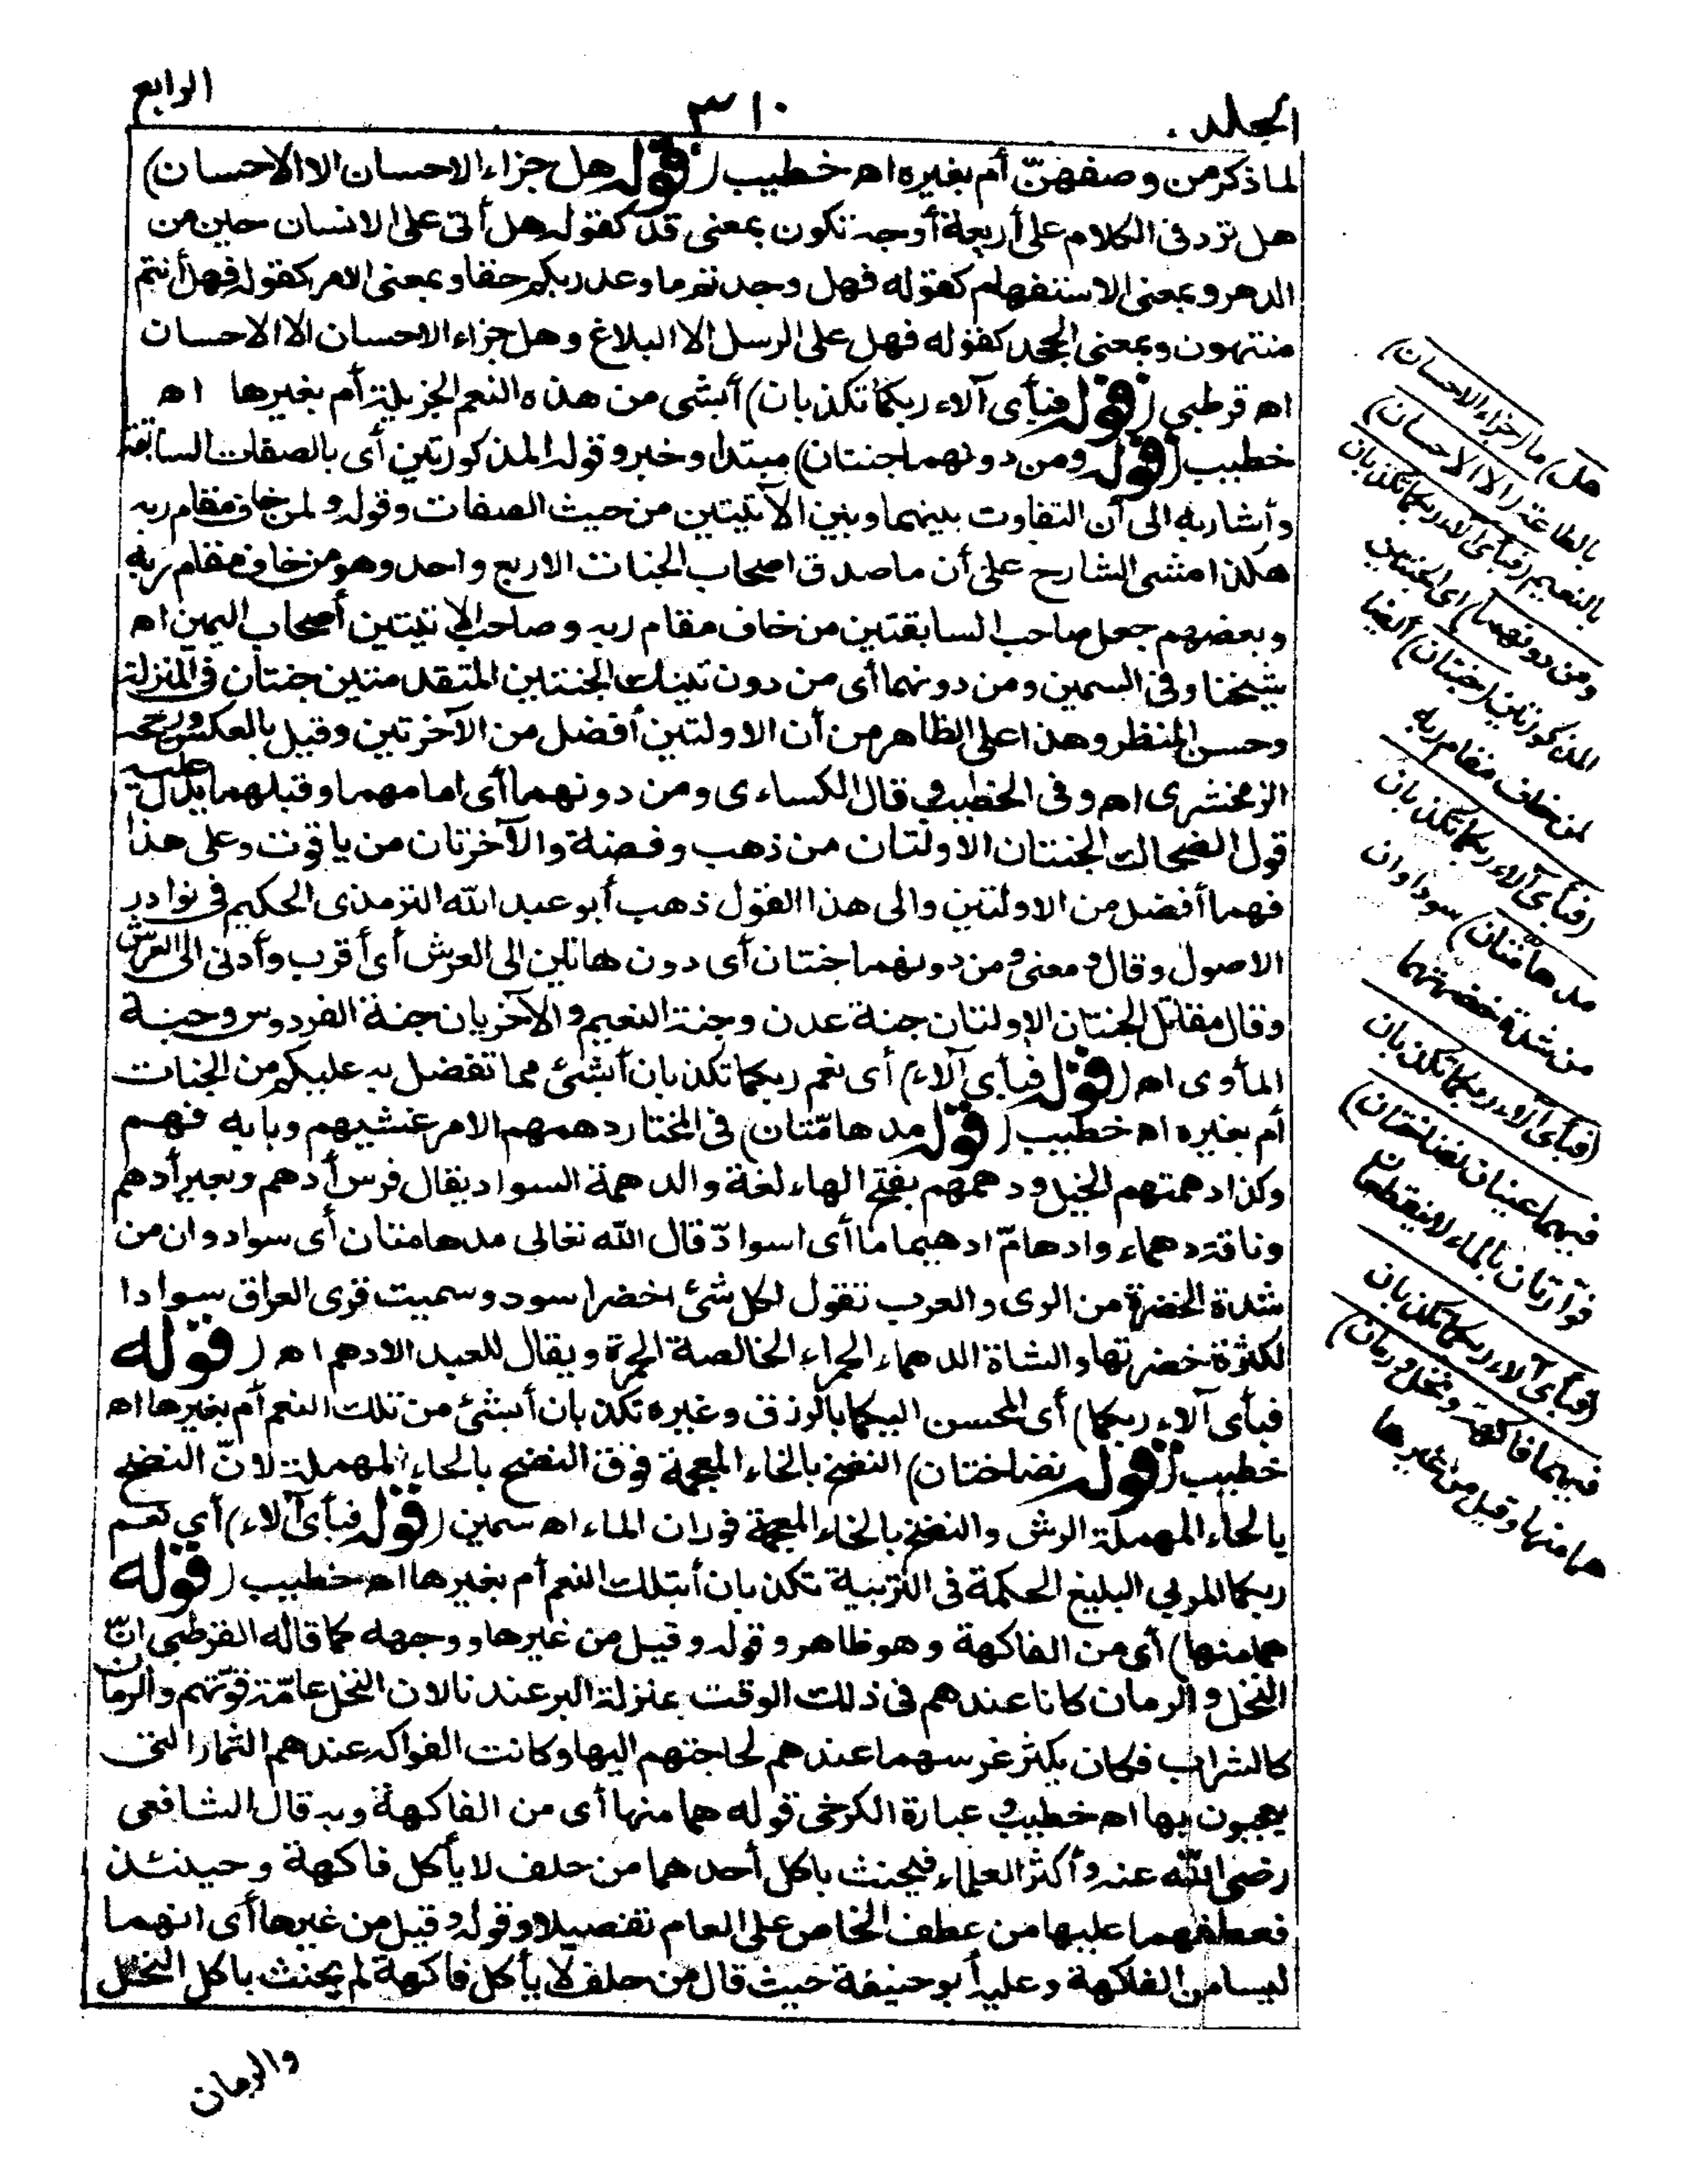 المجلد
٣١٠
الرابع
لما ذكر من وصفهنّ أم بغيره اه خطيب (قوله هل جزاء الاحسان الا الاحسان)
هل ترد فى الكلام على أربعة أوجه تكون بمعنى قد كقوله هل أتى على الانسان حين من
الدهر وبمعنى الاستفهام كقوله فهل وجدتم ما وعد ربكم حقا وبمعنى الامر كقوله فهل أنتم
منتهون وبمعنى الجحد كقوله فهل على الرسل الا البلاغ وهل جزاء الاحسان الا الاحسان
اه قرطبى (قوله فبأى آلاء ربكما تكذبان) أبشى من هذه النعم الجزيلة أم بغيرها اه
خطيب (قوله ومن دونهما جنتان) مبتدا وخبر وقوله المذكورتين أى بالصفات السابقة
وأشار به الى أن التفاوت بينهما وبين الآتيتين من حيث الصفات وقوله ولمن خاف مقام ربه
هكذا مشى الشارح على أن ماصدق اصحاب الجنات الاربع واحد وهو من خاف مقام ربه
وبعضهم جعل صاحب السابقتين من خاف مقام ربه وصاحب الاتيتين أصحاب اليمين اه
شيخنا وفى السمين ومن دونهما أى من دون تينك الجنتين المتقدمتين جنتان فى المنزلة
وحسن المنظر وهذا على الظاهر من أن الاولتين أفضل من الآخرتين وقيل بالعكس ورجحه
الزمخشرى اه وفى الخطيب قال الكساءى ومن دونهما أى امامهما وقبلهما يدل عليه
قول الضحاك الجنتان الاولتان من ذهب وفضة والآخرتان من ياقوت وعلى هذا
فهما أفضل من الاولتين والى هذا القول ذهب أبو عبد الله الترمذى الحكيم فى نوادر
الاصول وقال ومعنى ومن دونهما جنتان أى دون هاتين الى العرش أى أقرب وأدنى الى العرش
وقال مقاتل الجنتان الاولتان جنة عدن وجنة النعيم والآخريان جنة الفردوس وجنة
المأوى اه (قوله فبأى آلاء) أى نعم ربكما تكذبان أبشئ مما تفضل به عليكم من الجنات
أم بغيره اه خطيب (قوله مدهامّتان) فى المختار دهمهم الامر غشيهم وبابه فهم
وكذا دهمتهم الخيل ودهمهم بفتح الهاء لغة والدهمة السواد يقال فرس أدهم وبعير أدهم
وناقة دهماء وادهامّ ادهيماما أى اسوادّ قال الله تعالى مدهامتان أى سوادوان من
شدة الخضرة من الرى والعرب تقول لكل شئ اخضر اسود وسميت قرى العراق سوادا
لكثرة خضرتها والشاة الدهماء الحمراء الخالصة الحمرة ويقال للعبد الادهم اه (قوله
فبأى آلاء ربكما) أى المحسن اليكما بالرزق وغيره تكذبان أبشئ من تلك النعم أم بغيرها اه
خطيب (قوله نضاختان) النضخ بالخاء المعجمة فوق النضح بالحاء المهملة لانّ النضح
بالحاء المهملة الرش والنضخ بالخاء المعجمة فوران الماء اه سمين (قوله فبأى آلاء) أى نعم
ربكما المربى البليغ الحكمة فى التربية تكذبان أبتلك النعم أم بغيرها اه خطيب (قوله
هما منها) أى من الفاكهة وهو ظاهر وقوله وقيل من غيرها ووجهه كما قاله القرطبى انّ
النخل والرمان كانا عندهم فى ذلك الوقت بمنزلة البر عندنا لان النخل عامّة قوّتهم والرمان
كالشراب فكان يكثر غرسهما عندهم لحاجتهم اليها وكانت الفواكه عندهم الثمار التى
يعجبون بها اه خطيب وعبارة الكرخى قوله هما منها أى من الفاكهة وبه قال الشافعى
رضى الله عنه وأكثر العلماء فيحنث باكل أحدهما من حلف لا يأكل فاكهة وحينئذ
فعطفهما عليها من عطف الخاص على العام تفصيلا وقوله وقيل من غيرها أى انهما
ليسا من الفاكهة وعليه أبو حنيفة حيث قال من حلف لا يأكل فاكهة لم يحنث باكل النخل
والرمان
هل) ما (جزاء الاحسان)
بالطاعة (الا الاحسان)
بالنعيم (فبأى آلاء ربكما تكذبان
ومن دونهما) اى الجنتين
المذكورتين (جنتان) أيضا
لمن خاف مقام ربه
(فبأى آلاء ربكما تكذبان
مدهامّتان) سوداوان
من شدة خضرتهما
(فبأى آلاء ربكما تكذبان
فيهما عينان نضاختان)
فوارتان بالماء لا ينقطعان
(فبأى آلاء ربكما تكذبان
فيهما فاكهة ونخل ورمان)
هما منها وقيل من غيرها